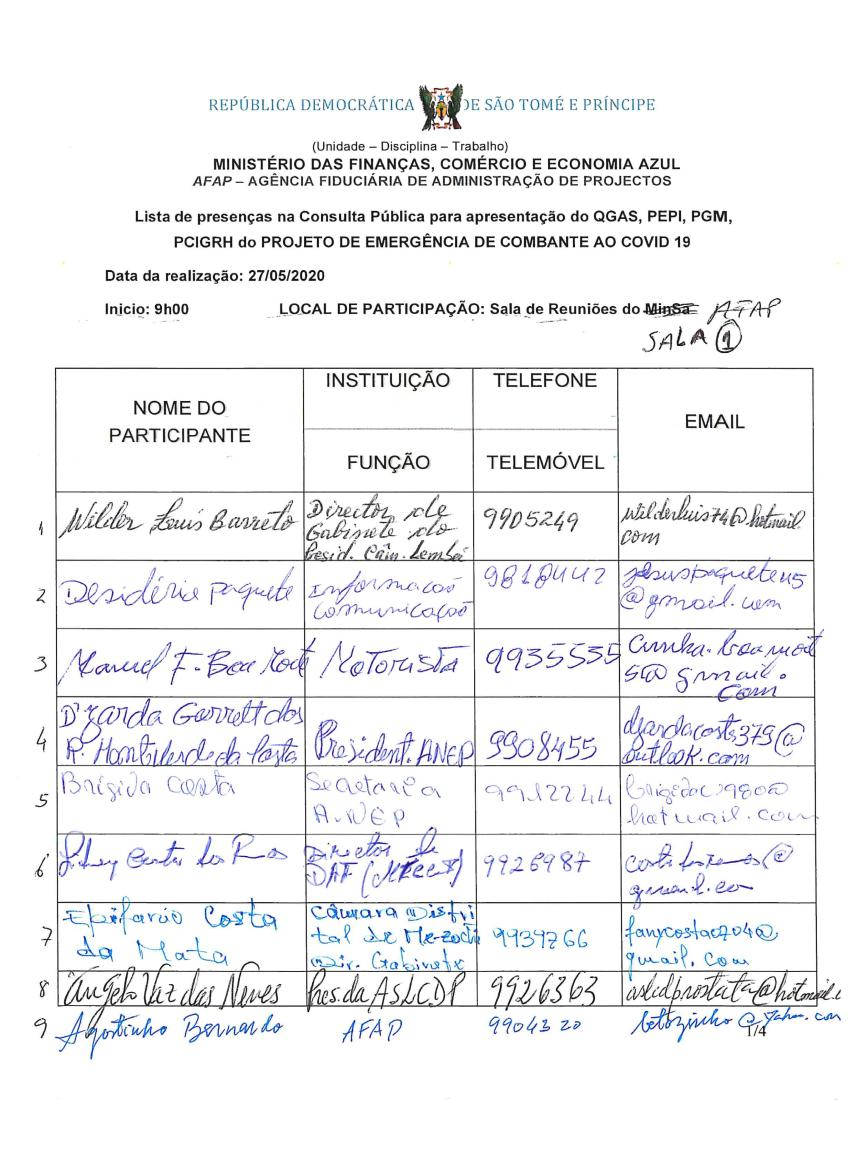 REPÚBLICA DEMOCRÁTICA DE SÃO TOMÉ E PRÍNCIPE
(Unidade – Disciplina – Trabalho)
MINISTÉRIO DAS FINANÇAS, COMÉRCIO E ECONOMIA AZUL
AFAP – AGÊNCIA FIDUCIÁRIA DE ADMINISTRAÇÃO DE PROJECTOS
Lista de presenças na Consulta Pública para apresentação do QGAS, PEPI, PGM,
PCIGRH do PROJETO DE EMERGÊNCIA DE COMBANTE AO COVID 19
Data da realização: 27/05/2020
Inicio: 9h00 LOCAL DE PARTICIPAÇÃO: Sala de Reuniões do MinSa AFAP
SALA 1
NOME DO
PARTICIPANTE
INSTITUIÇÃO
FUNÇÃO
TELEFONE
TELEMÓVEL
EMAIL
1 Wilder Luis Barreto
Director de
Gabinete do
Presid. Câm. Lembá
9905249
wilderluis74@hotmail.
com
2 Desidério Paquete
Informacoõ
Comunicaçoõ
9818442
jesuspaquete45
@gmail.com
3 Manuel F. Boa Morte
Motorista
9935535
@gmail.
com
4 D'zarda Garrett dos
R. da Costa
President. ANEP
9908455
dzardacosta379@
outlook.com
5 Brigida Costa
Secretaria
A.NEP
9912244
hotmail.com
6 Costa dos
Director de
DAF
9926987
7 Epifanio Costa
da Mata
Câmara Distri
tal de Me-zochi
Dir. Gabinete
9939766
fanycosta0704@
gmail.com
8 Ângelo Vaz das Neves
Pres. da ASLCDP
9926363
aslcdprostata@hotmail.c
9 Agostinho Bernardo
AFAP
9904320
betozinho@yahoo.com
1/4